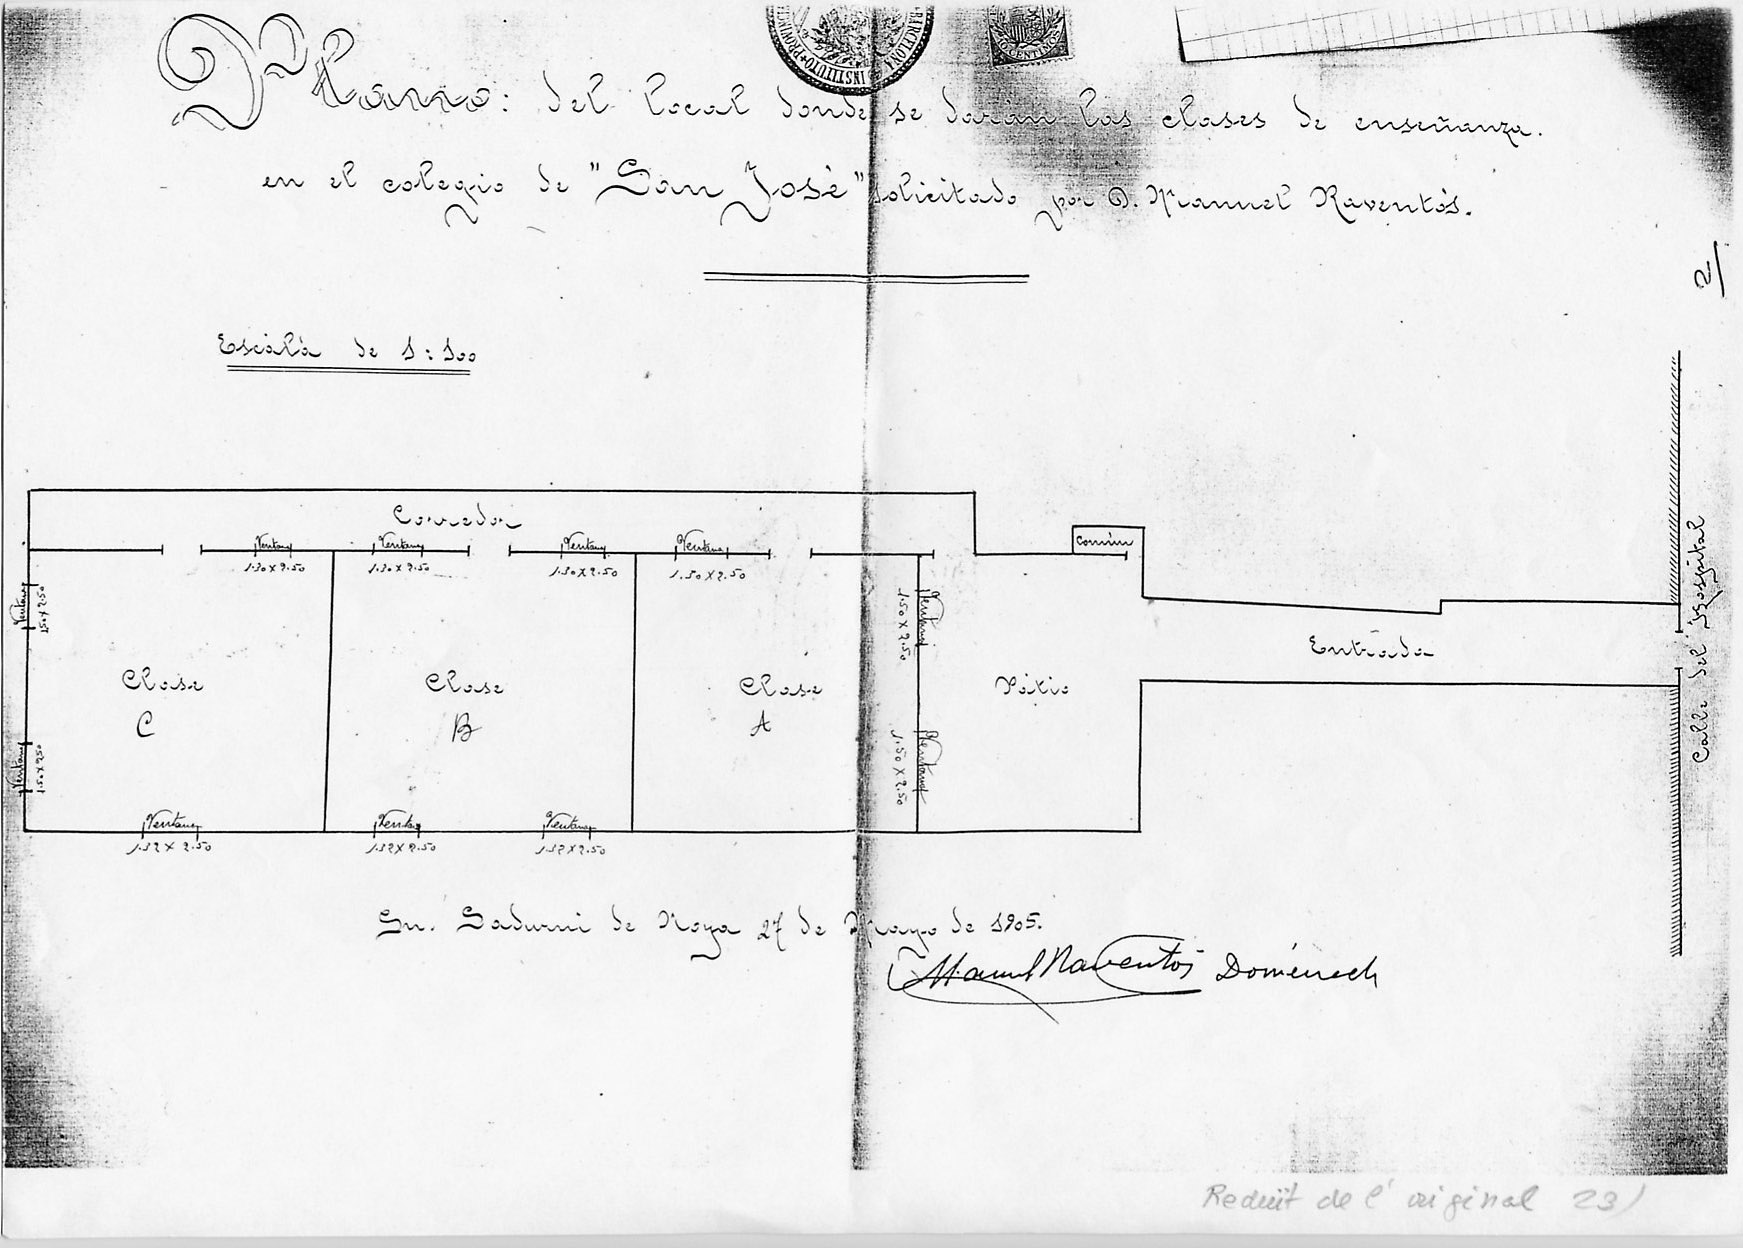 INSTITUTO PROVIN
BARCELONA
CENTIMOS
Plano: del local donde se darán las clases de enseñanza.
en el colegio de "San José" solicitado por D. Manuel Raventós.
2/
Escala de 1:100
Corredor
Ventana
Ventana
Ventana
Ventana
Común
1.30 X 2.50
1.30 X 2.50
1.30 X 2.50
1.50 X 2.50
Ventana
1.50 X 2.50
Ventana
1.50 X 2.50
Entrada
Calle del Hospital
Clase
C
Clase
B
Clase
A
Pátio
Ventana
1.50 X 2.50
Ventana
1.50 X 2.50
Ventana
Ventana
Ventana
1.32 X 2.50
1.32 X 2.50
1.32 X 2.50
Sn. Sadurni de Noya 27 de Mayo de 1905.
Manuel Raventós Doménech
Reduït de l'original 23)